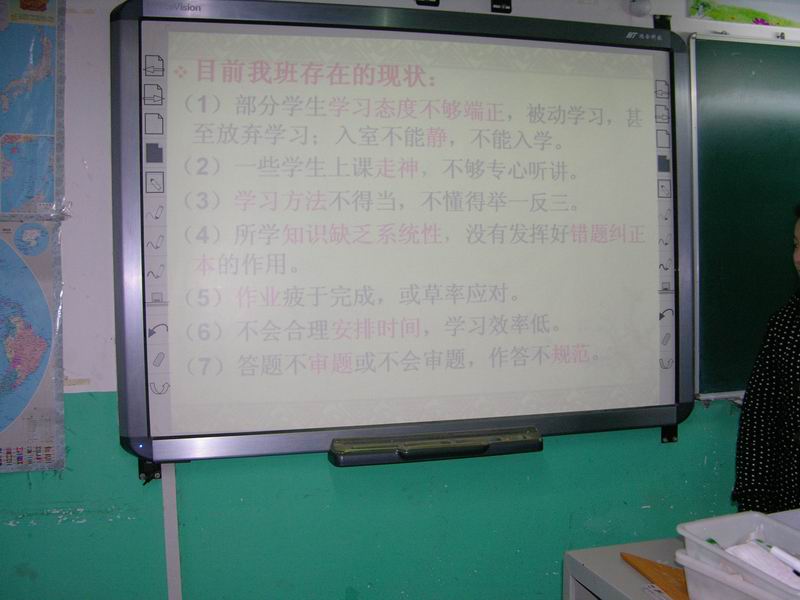 目前我班存在的现状：
（1）部分学生学习态度不够端正，被动学习，甚
至放弃学习；入室不能静，不能入学。
（2）一些学生上课走神，不够专心听讲。
（3）学习方法不得当，不懂得举一反三。
（4）所学知识缺乏系统性，没有发挥好错题纠正
本的作用。
（5）作业疲于完成，或草率应对。
（6）不会合理安排时间，学习效率低。
（7）答题不审题或不会审题，作答不规范。